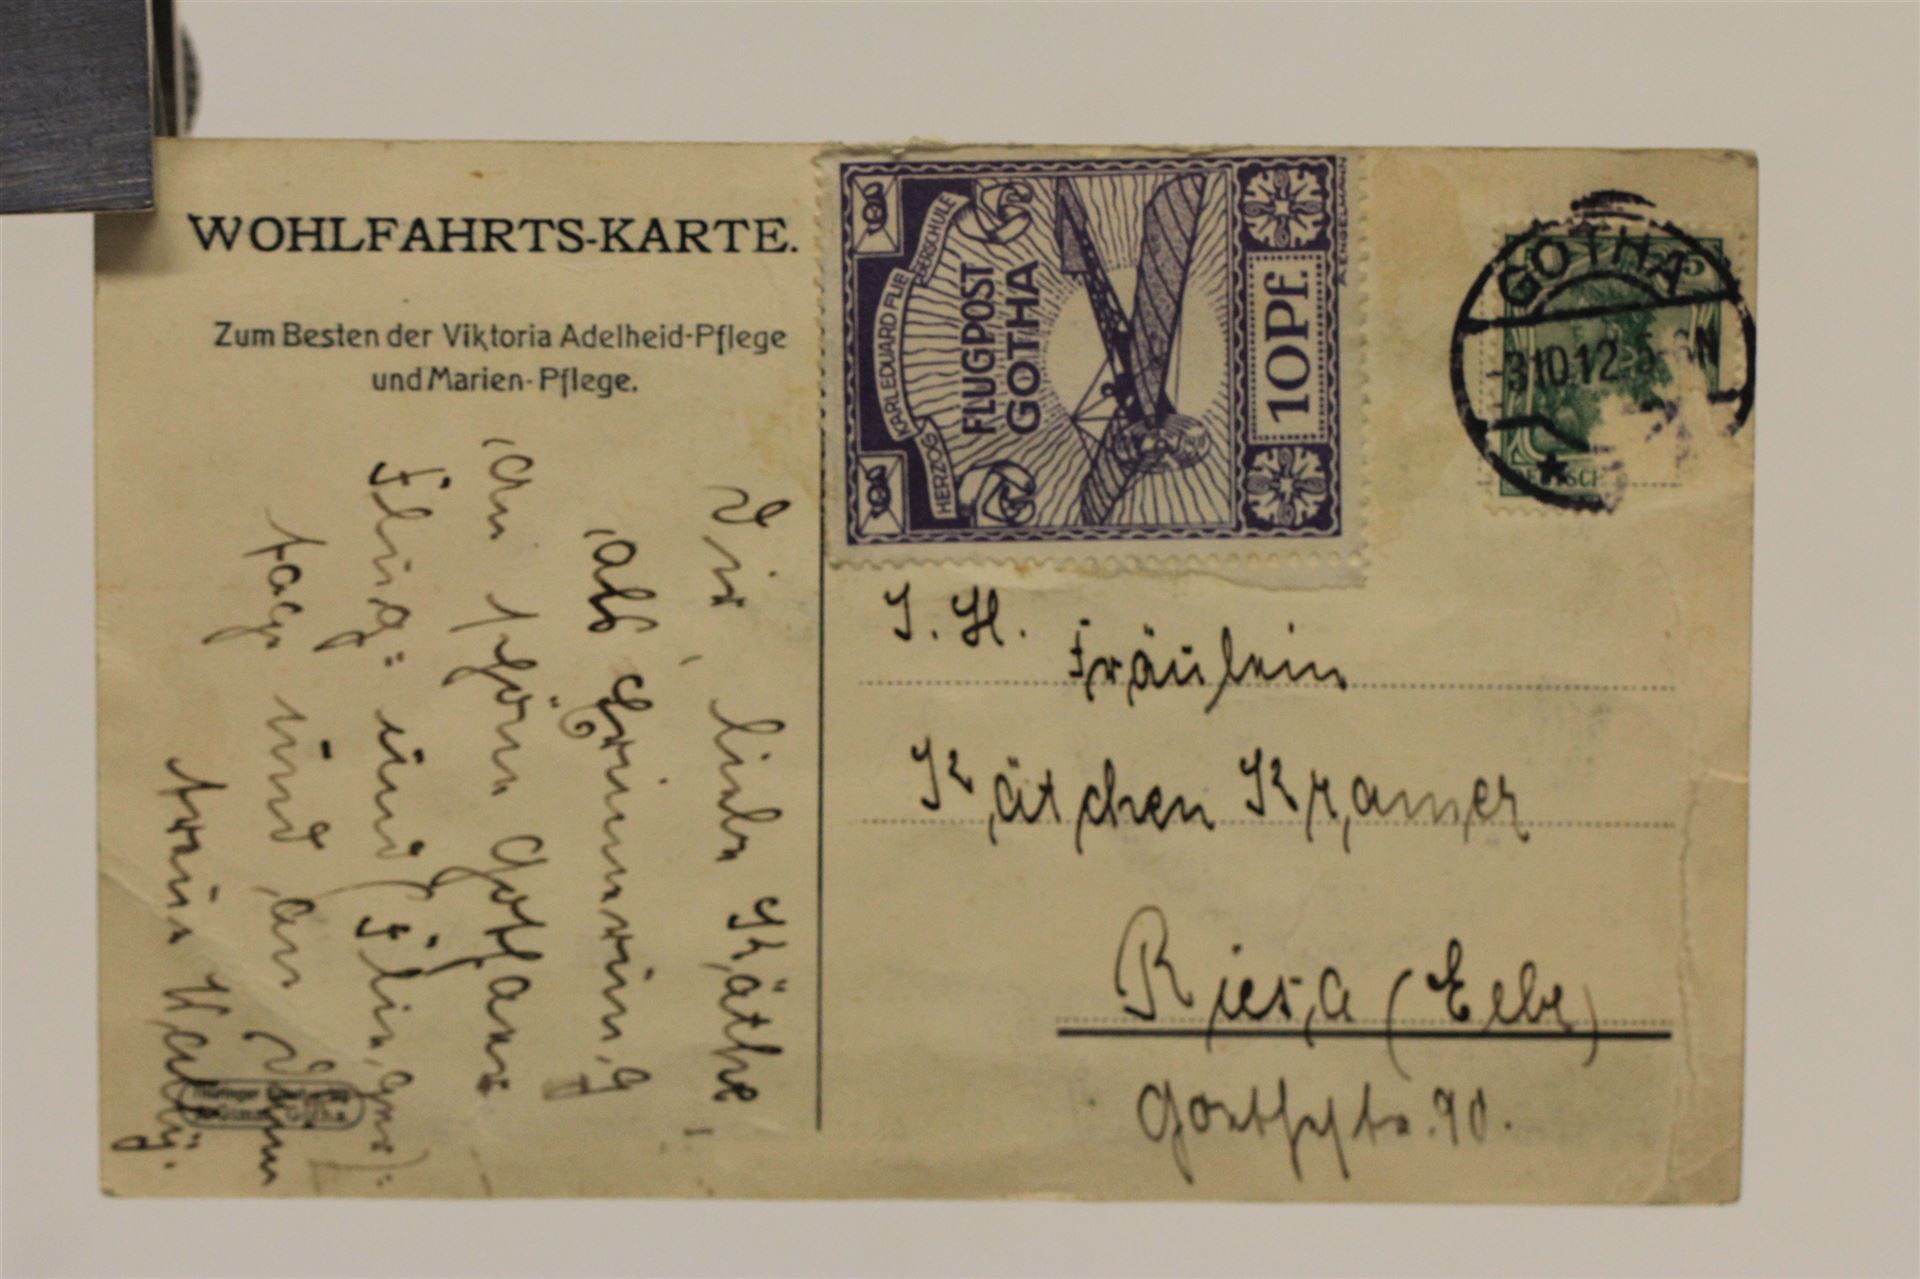 WOHLFAHRTS-KARTE.
Zum Besten der Viktoria Adelheid-Pflege
und Marien-Pflege.
Dir, liebe Käthe!
als Erinnerung
an schöne Gothaer
Flug- und Flie(ger)-
tage und an Deinen
treuen
HERZOG KARL EDUARD FLIEGERSCHULE
FLUGPOST
GOTHA
10 PF.
A. ENGELMANN
GOTHA
-3.10.12.5-6N
5
I. H. Fräulein
Kätchen Kramer
Riesa (Elbe)
Goethestr. 90.